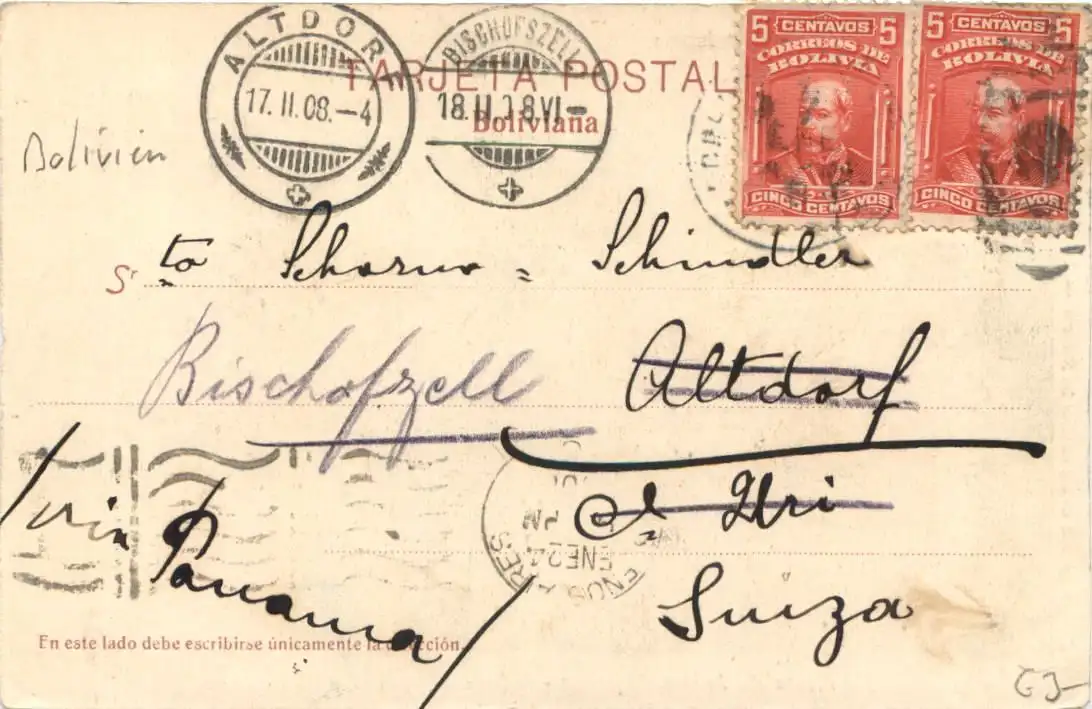 ALTDORF
17. II. 08. – 4
BISCHOFSZELL
18. II. 08 VI –
TARJETA POSTAL
Boliviana
5 CENTAVOS 5
CORREOS DE
BOLIVIA
CINCO CENTAVOS
5 CENTAVOS 5
CORREOS DE
BOLIVIA
CINCO CENTAVOS
Bolivien
Sr. to Schorno = Schindler
Bischofzell Altdorf
Ct Uri
via Panama
Suiza
BUENOS AIRES
ENE 24
PM
En este lado debe escribirse únicamente la dirección.